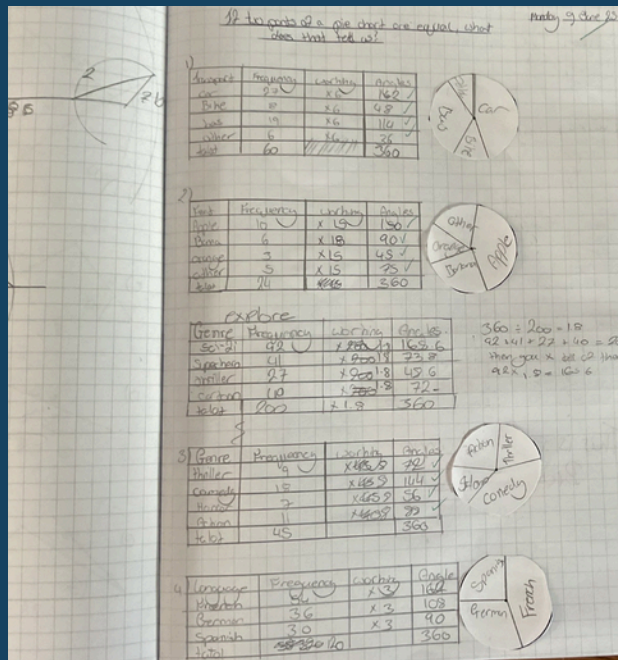 If two parts of a pie chart are equal, what
does that tell us?
Monday 9 June 25
2
7b
1)
Transport Frequency Working Angles
Car 27 ×6 162
Bike 8 ×6 48
bus 19 ×6 114
other 6 ×6 36
total 60 360
Car
Bus
2)
Fruit Frequency Working Angles
Apple 10 ×15 150
6 ×18 90
orange 3 ×15 45
other 5 ×15 75
total 24 360
Other
Orange
Banana
Apple
explore
Genre Frequency Working Angles
Sci-Fi 92 165.6
41 73.8
thriller 27 1.8 48.6
cartoon 40 1.8 72
total 200 ×1.8 360
360 ÷ 200 = 1.8
92 + 41 + 27 + 40 =
then you × all of tha
3) Genre Frequency Working Angles
thriller 9 72
Comedy 18 144
7 56
Action 11 88
total 45 360
Action
Thriller
Comedy
4 Language Frequency Working Angle
×3 162
German 36 ×3 108
Spanish 30 ×3 90
total 360
Spanish
German
French